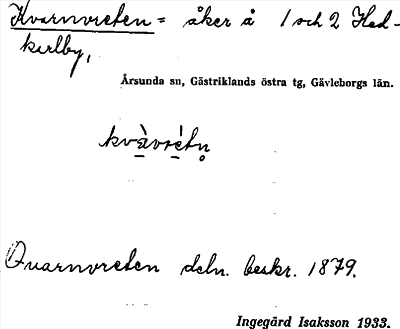 Kvarnvreten = åker å 1 och 2 Hed-
karlby,
Årsunda sn, Gästriklands östra tg, Gävleborgs län.
kvàvrétn̥
Qvarnvreten deln. beskr. 1879.
Ingegärd Isaksson 1933.